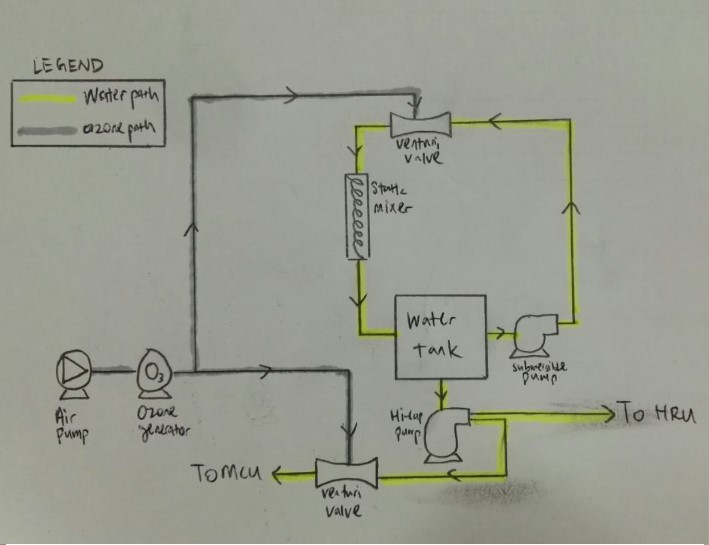 LEGEND
Water path
ozone path
venturi
valve
Static
mixer
Water
tank
submersible
pump
O3
Air
pump
Ozone
generator
pump
To HRU
To MCU
venturi
valve